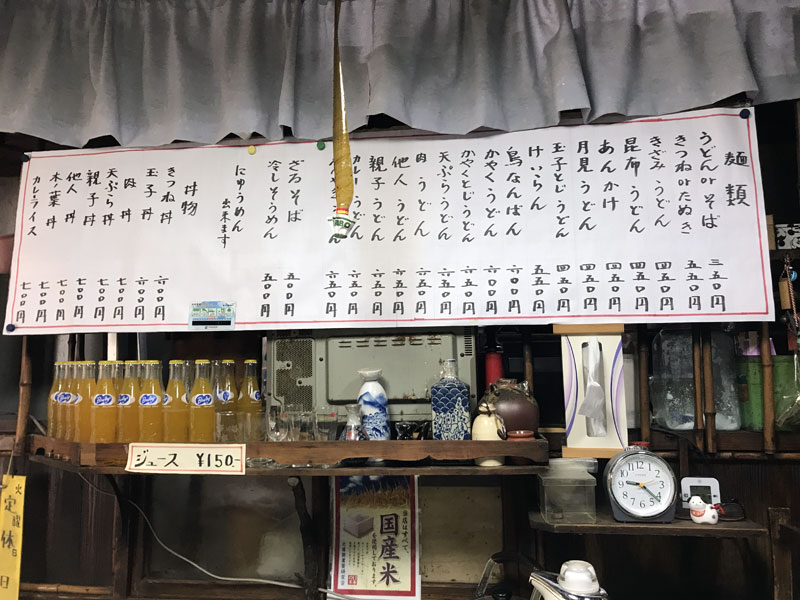 麺類
うどんorそば 三五〇円
きつねorたぬき 五五〇円
きざみうどん 四五〇円
昆布うどん 四五〇円
あんかけ 四五〇円
月見うどん 四五〇円
玉子とじうどん 四五〇円
けいらん 五五〇円
鳥なんばん 六〇〇円
かやくうどん 六〇〇円
かやくとじうどん 六五〇円
天ぷらうどん 六五〇円
肉うどん 六五〇円
他人うどん 六五〇円
親子うどん 六五〇円
カレーうどん 六五〇円
うどん 六五〇円
ざるそば 五〇〇円
冷しそうめん 五〇〇円
にゅうめん
出来ます
丼物
きつね丼 六〇〇円
玉子丼 六〇〇円
肉丼 七〇〇円
天ぷら丼 七〇〇円
親子丼 七〇〇円
他人丼 七〇〇円
木葉丼 七〇〇円
カレーライス 七〇〇円
ジュース ¥150-
当店はすべて、
国産米
を使用しております。
火曜日
定休日